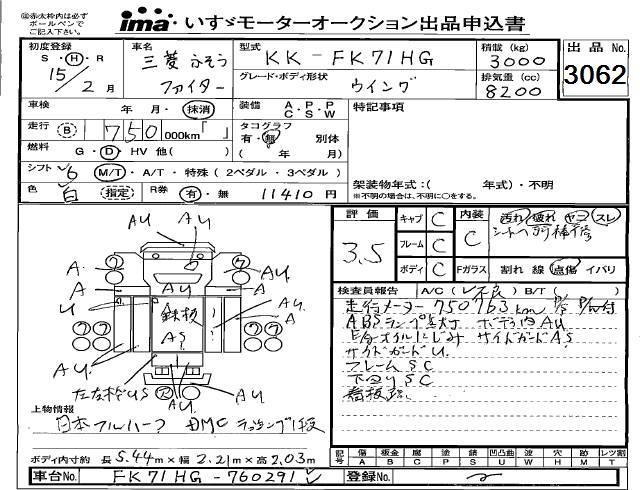 ㊟赤太枠内は必ず
ボールペンで
ご記入下さい。
ima いすゞモーターオークション出品申込書
初度登録 車名 型式 積載 (kg) 出品No.
S・H・R 三菱ふそう KK-FK71HG 3000
15/2月 ファイター グレード・ボディ形状 ウイング 排気量 (cc) 8200 3062
車検 年・月・抹消 装備 A・P・P 特記事項
C・S・W
走行 B 750 000km「 」 タコグラフ
有・無 別体
燃料 G・D・HV 他( ) ( 年 月)
シフト 6 M/T・A/T・特殊 (2ペダル・3ペダル)
架装物年式:( 年式)・不明
色 白 指定 R券 有・無 11410 円
※不明の場合は、不明に○をする。
評価 3.5 キャブ C 内装 C 汚れ 破れ ヤコ スレ
フレーム C
ボディ C Fガラス 割れ 線 点傷 イバリ
AU AU
A A AU
A AU A
U 鉄板 A
AS
AU AU
AU
検査員報告 A/C (レ不良) B/T( )
走行メーター750763km
ABSランプ点灯 ボデ内AU
サイドガードAS
サイドガードU
フレームSC
下回りSC
上物情報
ボディ内寸約 長5.44m×幅2.21m×高2.03m
記号 傷 板金 腐 塗 錆 凹凸曲 割 穴 跡 レツ割
A B C P S U W H M T
車台No. FK71HG-760291 登録No.